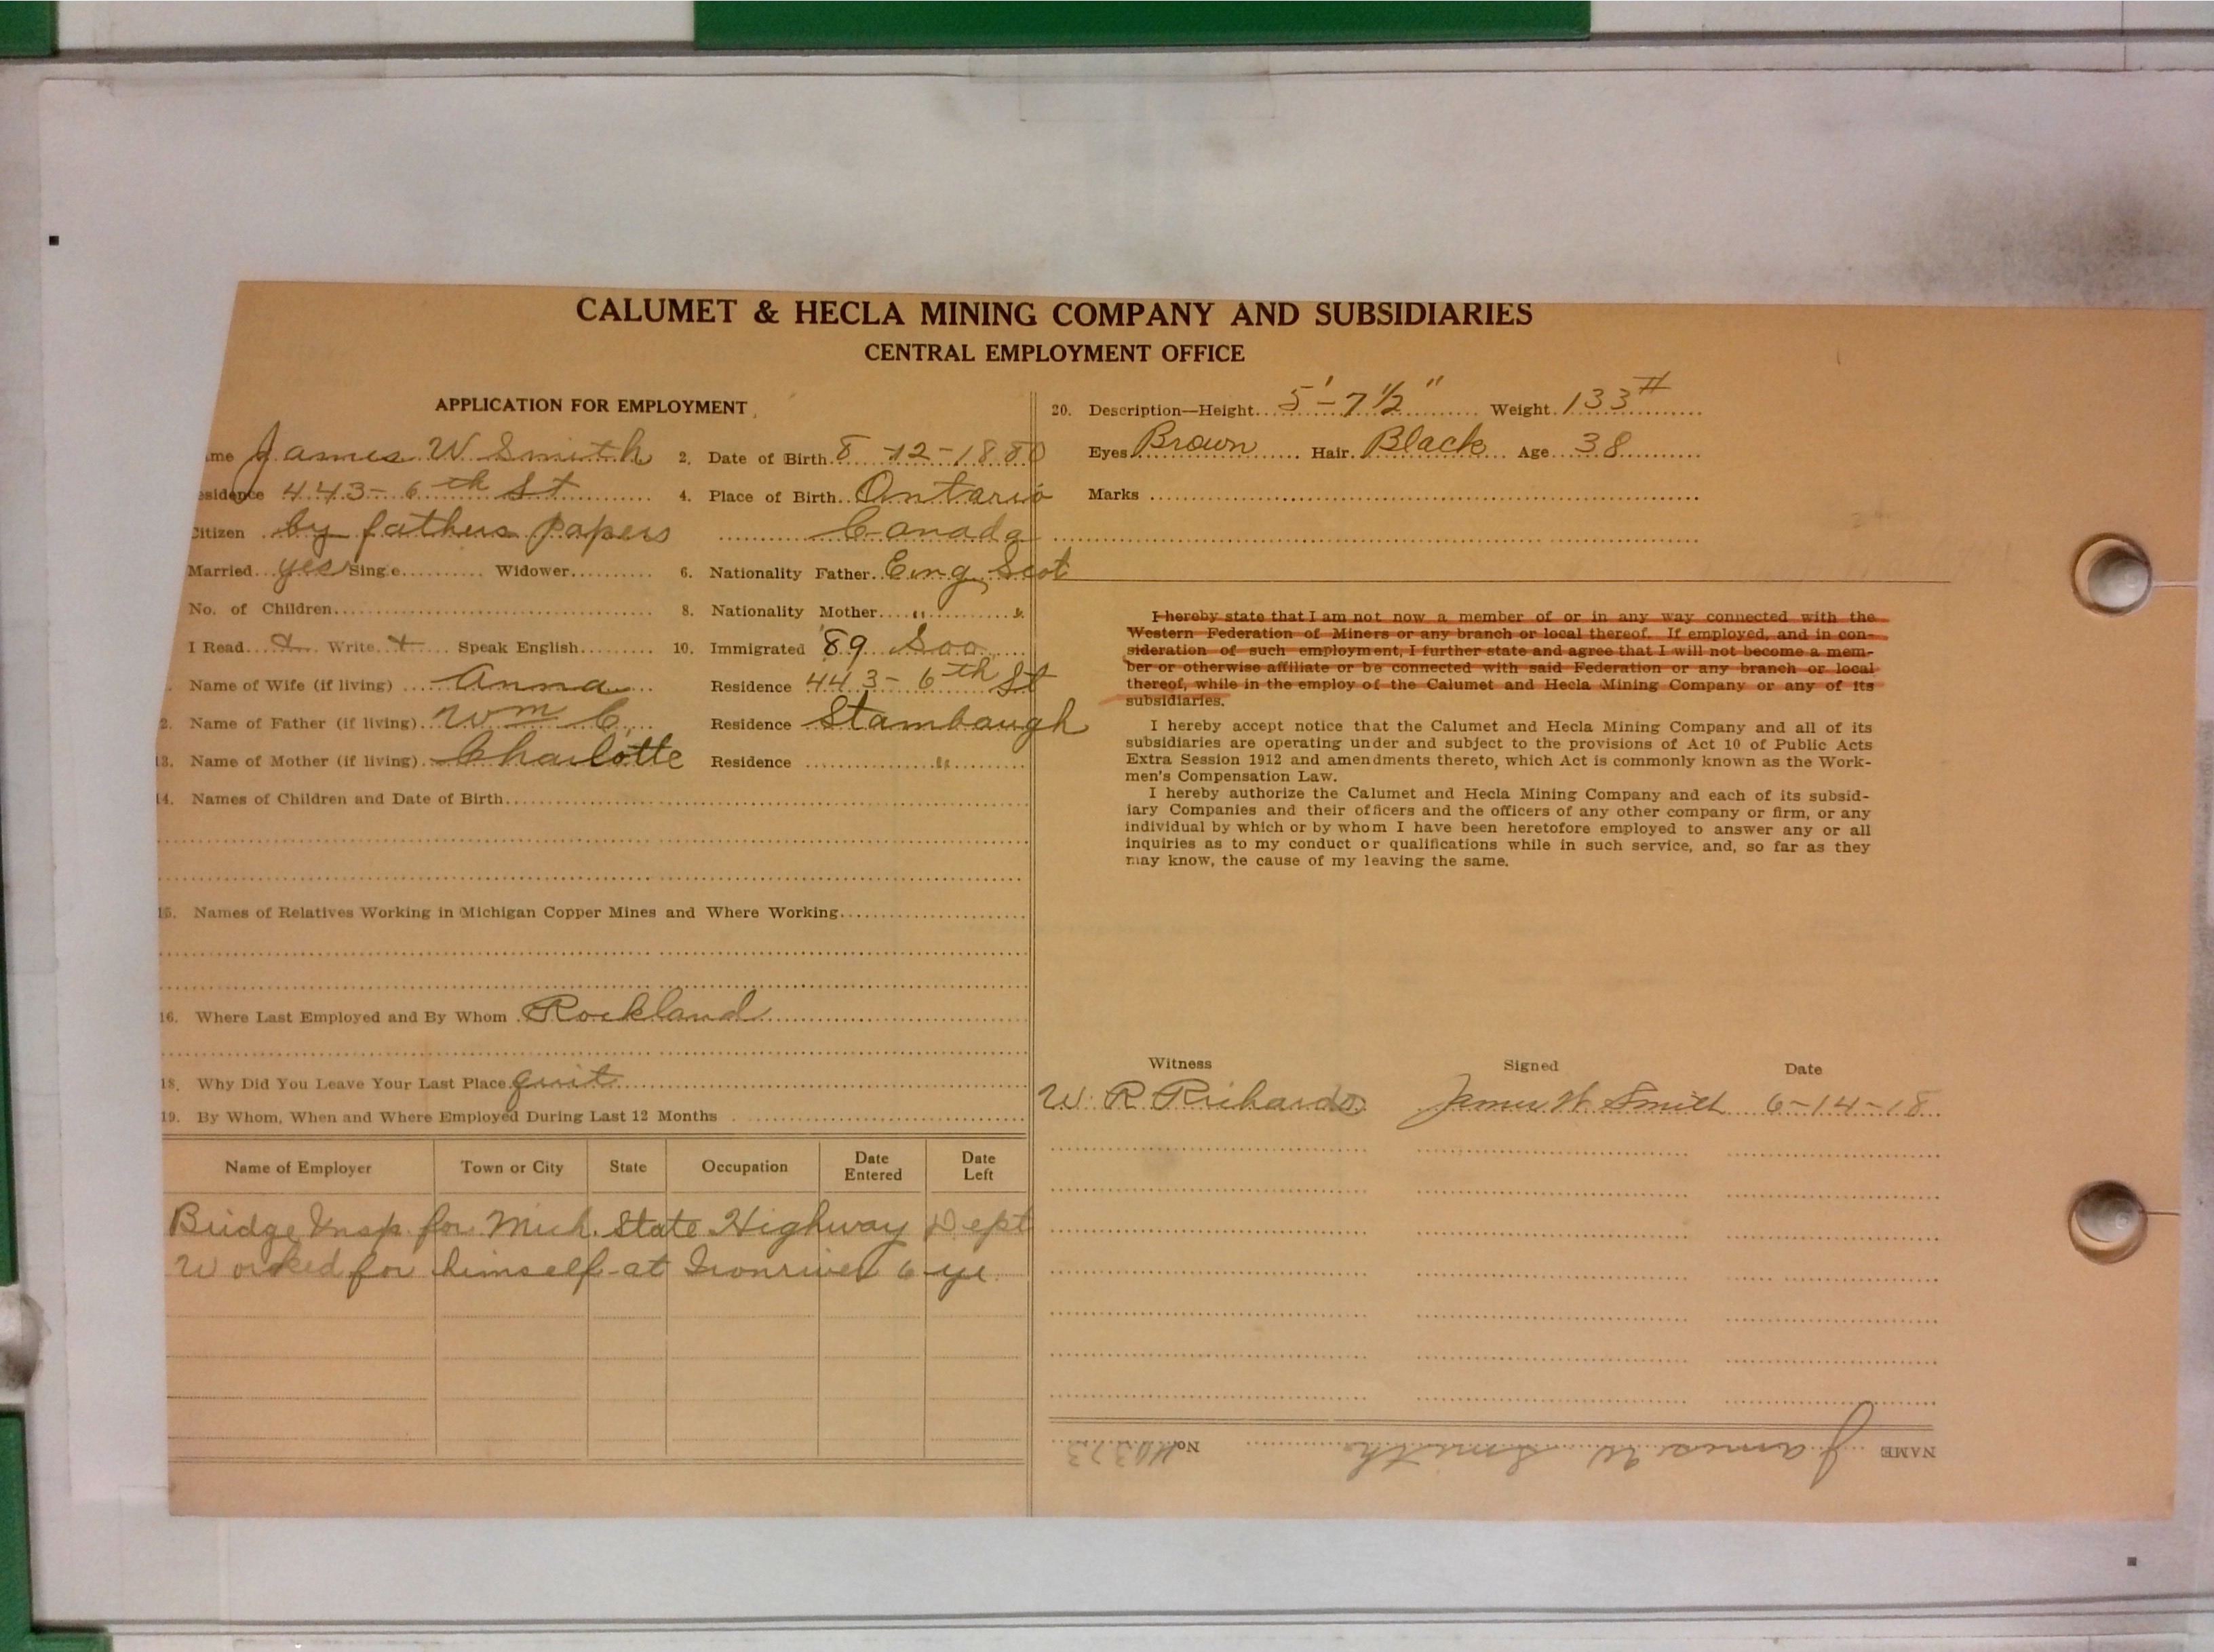 CALUMET & HECLA MINING COMPANY AND SUBSIDIARIES
CENTRAL EMPLOYMENT OFFICE
APPLICATION FOR EMPLOYMENT
me James W Smith 2. Date of Birth 8-12-1880
esidence 443-6th St 4. Place of Birth Ontario
Citizen by fathers papers Canada
Married yes Single Widower 6. Nationality Father Eng, Scot
No. of Children 8. Nationality Mother " "
I Read + Write + Speak English 10. Immigrated 89 Soo
Name of Wife (if living) Anna Residence 443-6th St
2. Name of Father (if living) Wm C. Residence Stambaugh
13. Name of Mother (if living) Charlotte Residence "
14. Names of Children and Date of Birth
15. Names of Relatives Working in Michigan Copper Mines and Where Working
16. Where Last Employed and By Whom Rockland
18. Why Did You Leave Your Last Place quit
19. By Whom, When and Where Employed During Last 12 Months
Name of Employer Town or City State Occupation Date Entered Date Left
Bridge Insp. for Mich. State Highway Dept
Worked for himself at Ironriver 6 yr.
20. Description—Height 5'-7½" Weight 133#
Eyes Brown Hair Black Age 38
Marks
I hereby state that I am not now a member of or in any way connected with the
Western Federation of Miners or any branch or local thereof. If employed, and in con-
sideration of such employment, I further state and agree that I will not become a mem-
ber or otherwise affiliate or be connected with said Federation or any branch or local
thereof, while in the employ of the Calumet and Hecla Mining Company or any of its
subsidiaries.
I hereby accept notice that the Calumet and Hecla Mining Company and all of its
subsidiaries are operating under and subject to the provisions of Act 10 of Public Acts
Extra Session 1912 and amendments thereto, which Act is commonly known as the Work-
men's Compensation Law.
I hereby authorize the Calumet and Hecla Mining Company and each of its subsid-
iary Companies and their officers and the officers of any other company or firm, or any
individual by which or by whom I have been heretofore employed to answer any or all
inquiries as to my conduct or qualifications while in such service, and, so far as they
may know, the cause of my leaving the same.
Witness Signed Date
W R Richards James W. Smith 6-14-18
NAME James W Smith No.